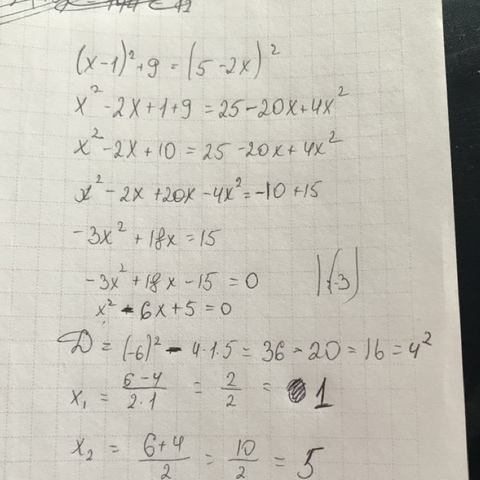 (x-1)²+9 = (5-2x)²
x²-2x+1+9 = 25-20x+4x²
x²-2x+10 = 25-20x+4x²
x²-2x+20x-4x² = -10+15
-3x²+18x = 15
-3x²+18x-15 = 0 |:(-3)
x²-6x+5 = 0
D = (-6)²-4·1·5 = 36-20 = 16 = 4²
x₁ = (6-4)/(2·1) = 2/2 = 1
x₂ = (6+4)/2 = 10/2 = 5